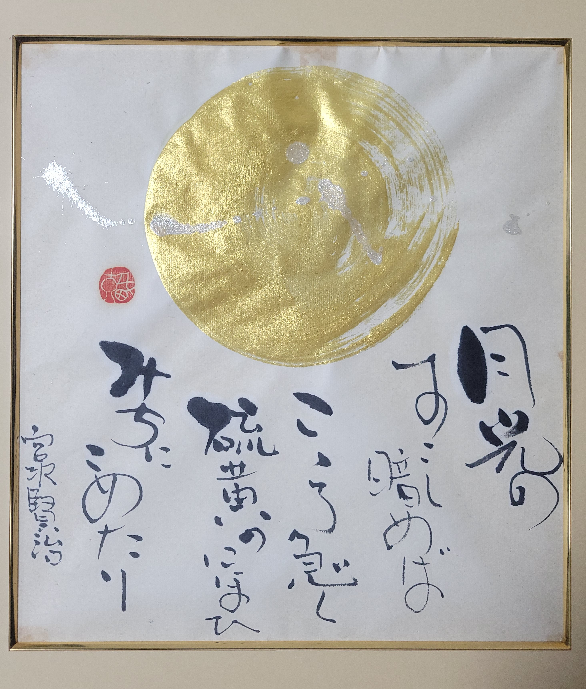 月光の
すこし暗めば
こころ急く
硫黄のにほひ
みちに
こめたり
宮沢賢治